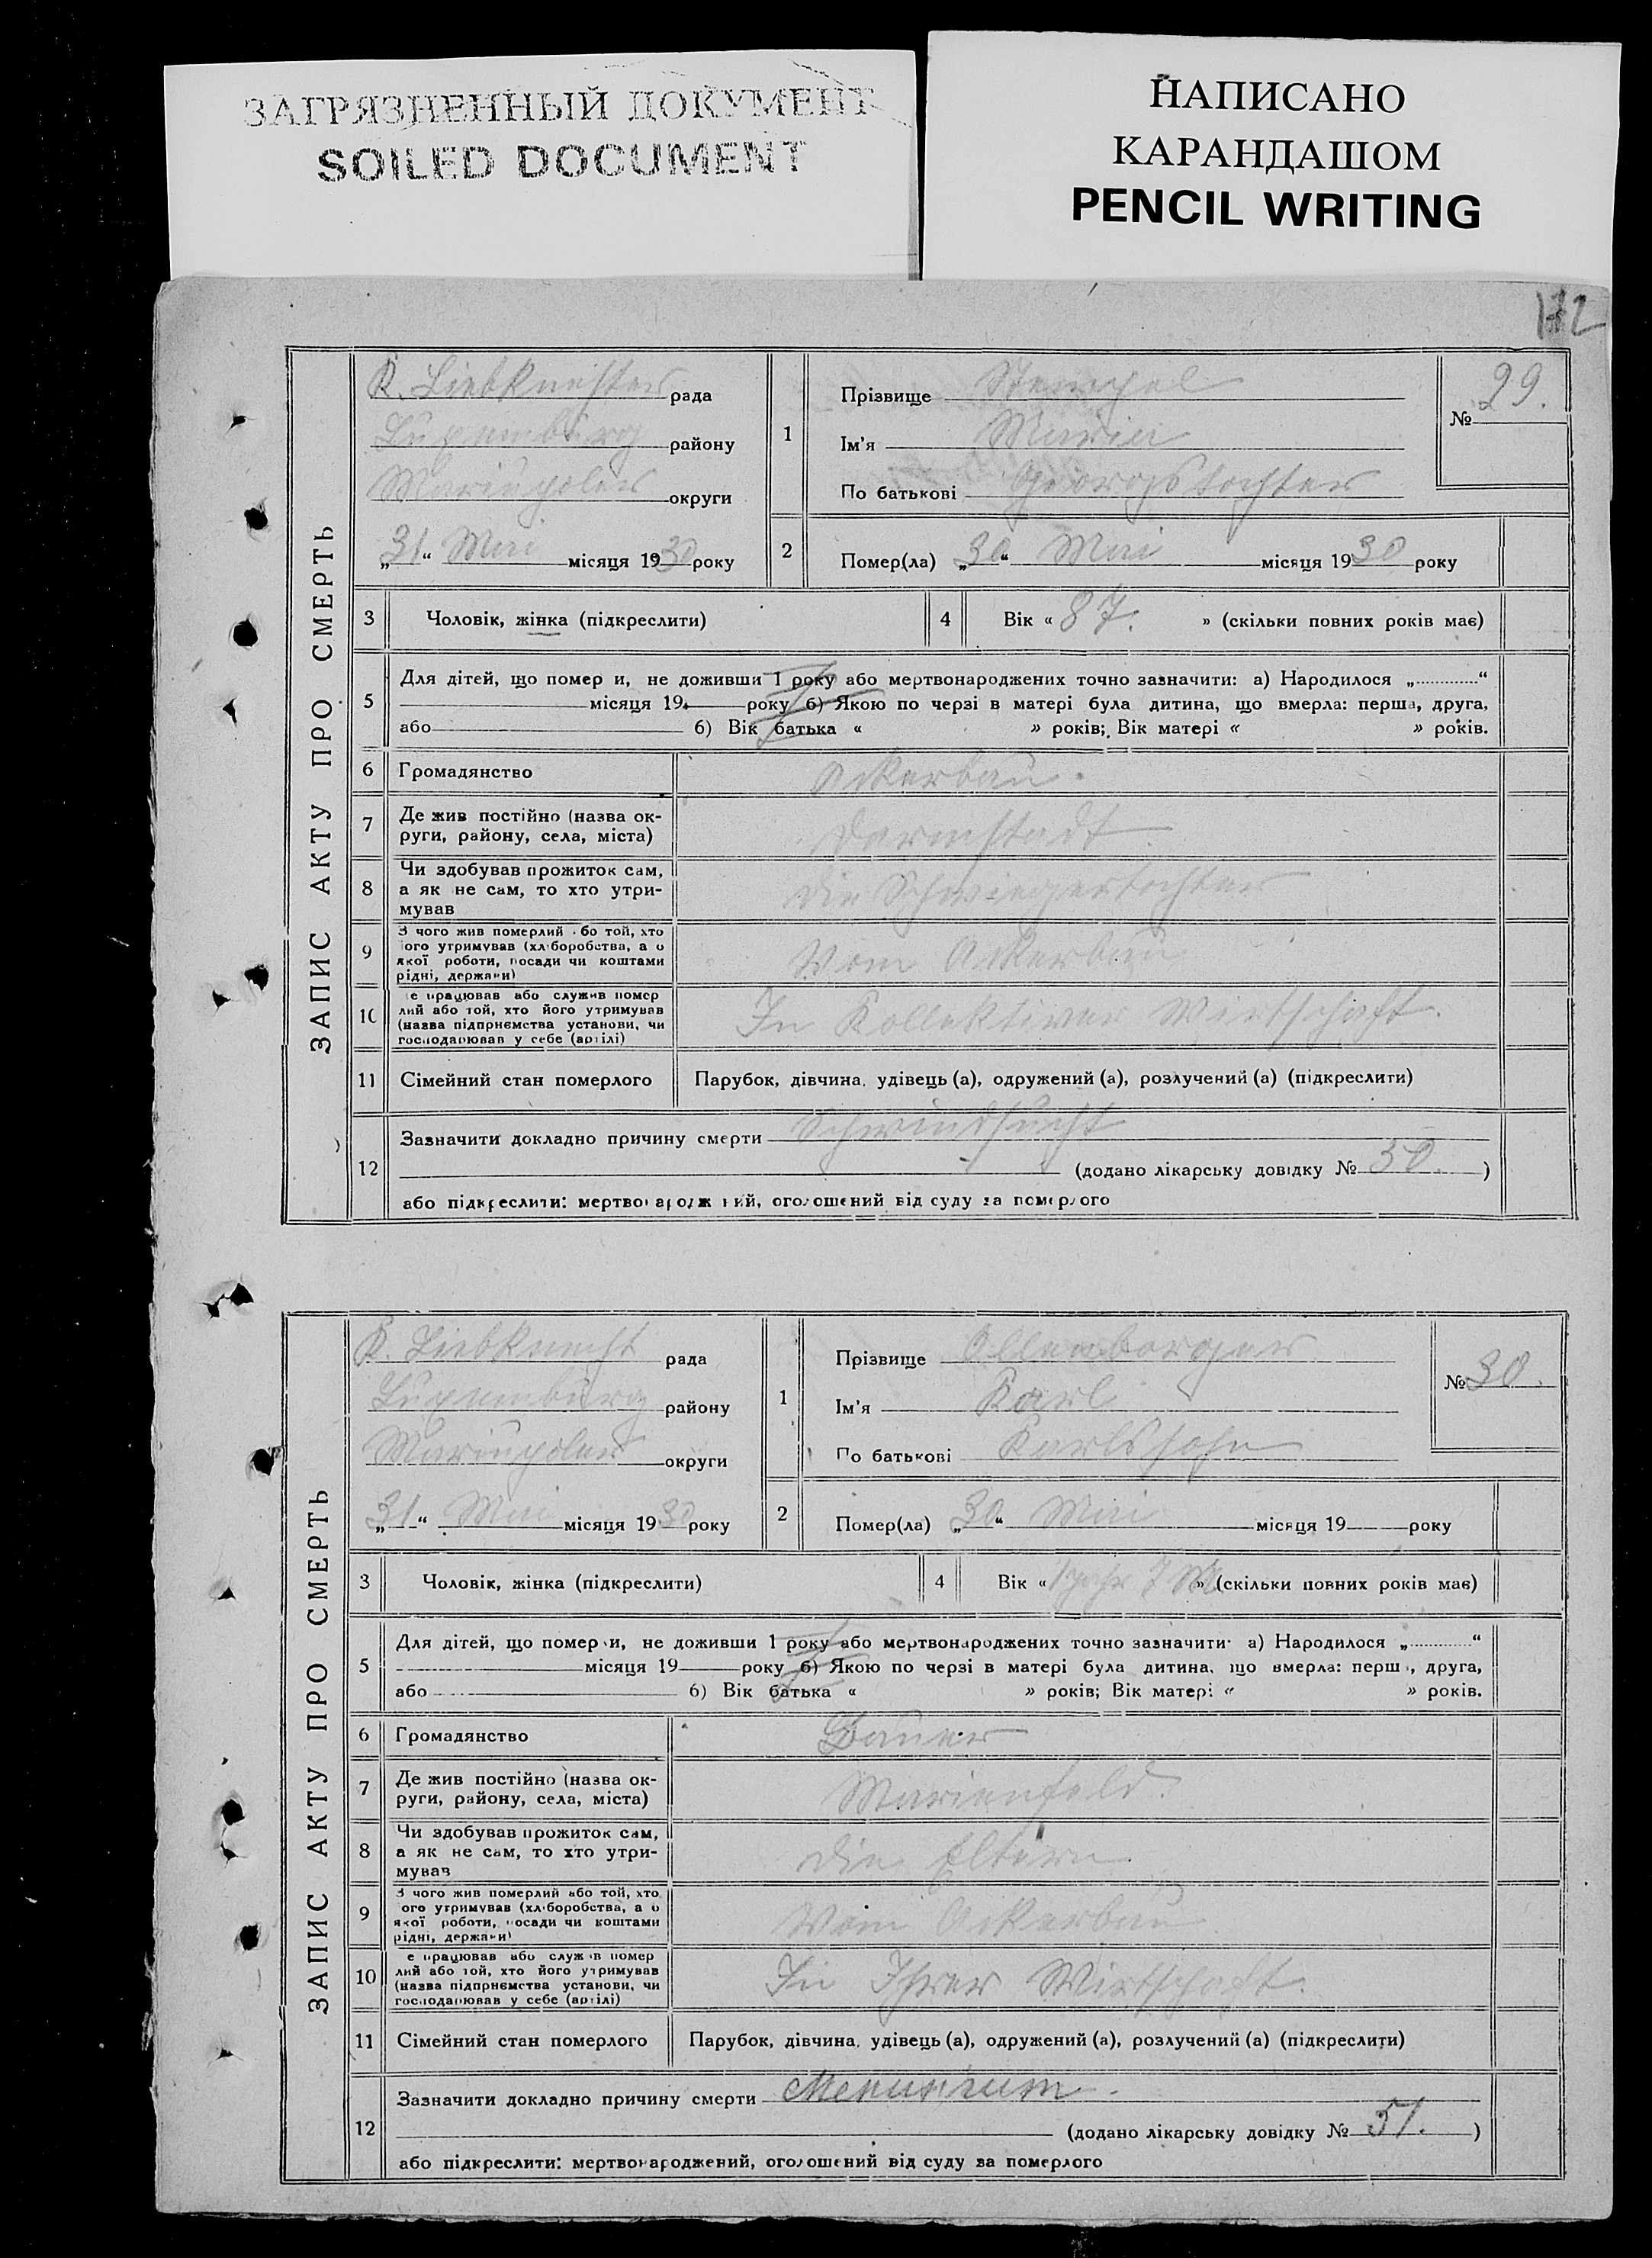 ЗАГРЯЗНЕННЫЙ ДОКУМЕНТ
SOILED DOCUMENT
НАПИСАНО
КАРАНДАШОМ
PENCIL WRITING
172
ЗАПИС АКТУ ПРО СМЕРТЬ
K. Liebknechter рада
Luxemburg району
Mariupoler округи
„31“ Mai місяця 1930 року
1
Прізвище Stempel
Ім'я Maria
По батькові Georgstochter
№ 29.
2
Помер(ла) „30“ Mai місяця 1930 року
3 Чоловік, жінка (підкреслити)
4 Вік « 87. » (скільки повних років має)
5 Для дітей, що помер и, не доживши 1 року або мертвонароджених точно зазначити: а) Народилося „............“
місяця 19 року б) Якою по черзі в матері була дитина, що вмерла: перша, друга,
або б) Вік батька « » років; Вік матері « » років.
6 Громадянство Ackerbau.
7 Де жив постійно (назва ок-
руги, району, села, міста) Darmstadt.
8 Чи здобував прожиток сам,
а як не сам, то хто утри-
мував die Schwiegertochter
9 З чого жив померлий або той, хто
ого утримував (хліборобства, а о
якої роботи, посади чи коштами
рідні, держави) Vom Ackerbau
10 е працював або служив помер
лий або той, хто його утримував
(назва підприємства установи, чи
господарював у себе (артілі) In Kollektiver Wirtschaft.
11 Сімейний стан померлого Парубок, дівчина, удівець (а), одружений (а), розлучений (а) (підкреслити)
12 Зазначити докладно причину смерти Schwindsucht
(додано лікарську довідку № 50. )
або підкреслити: мертвонароджений, оголошений від суду за померлого
ЗАПИС АКТУ ПРО СМЕРТЬ
K. Liebknecht рада
Luxemburg району
Mariupoler округи
„31“ Mai місяця 1930 року
1
Прізвище Ollenberger
Ім'я Karl
По батькові Karlssohn
№ 30.
2
Помер(ла) „30“ Mai місяця 19 року
3 Чоловік, жінка (підкреслити)
4 Вік « 1 Jahr 7 M » (скільки повних років має)
5 Для дітей, що помер и, не доживши 1 року або мертвонароджених точно зазначити: а) Народилося „............“
місяця 19 року б) Якою по черзі в матері була дитина, що вмерла: перш , друга,
або б) Вік батька « » років; Вік матері « » років.
6 Громадянство Bauer
7 Де жив постійно (назва ок-
руги, району, села, міста) Marienfeld.
8 Чи здобував прожиток сам,
а як не сам, то хто утри-
мував die Eltern
9 З чого жив померлий або той, хто
ого утримував (хліборобства, а о
якої роботи, посади чи коштами
рідні, держави) Vom Ackerbau
10 е працював або служив помер
лий або той, хто його утримував
(назва підприємства установи, чи
господарював у себе (артілі) In Ihrer Wirtschaft.
11 Сімейний стан померлого Парубок, дівчина, удівець (а), одружений (а), розлучений (а) (підкреслити)
12 Зазначити докладно причину смерти
(додано лікарську довідку № 51. )
або підкреслити: мертвонароджений, оголошений від суду за померлого